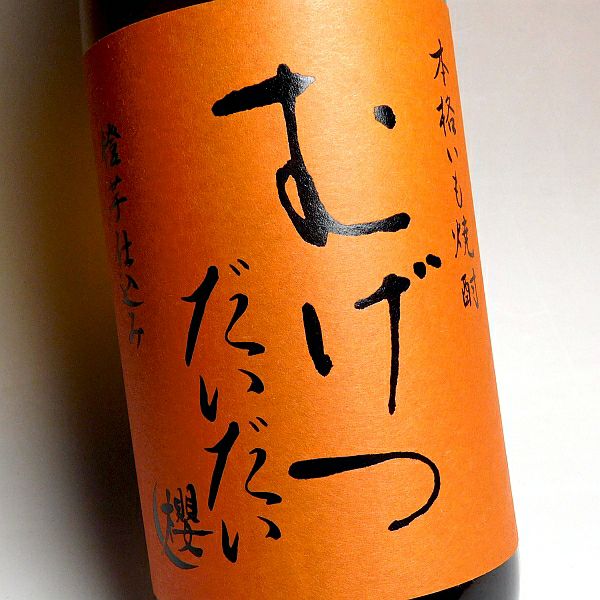 本格いも焼酎
むげつ
だいだい
橙芋仕込み
櫻